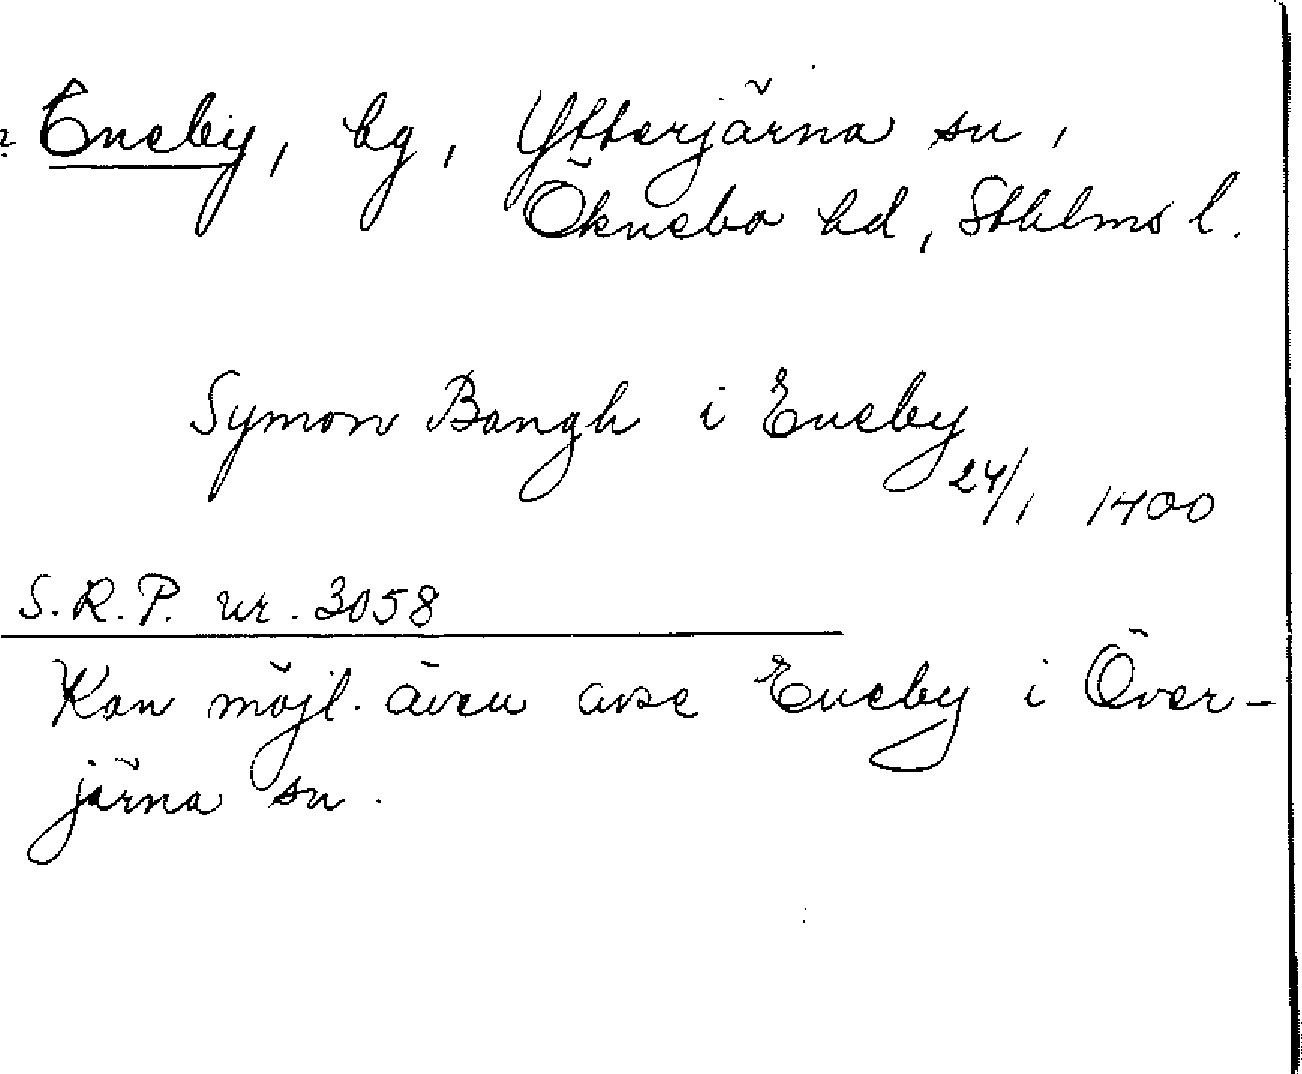 ? Eneby, by, Ytterjärna sn,
Öknebo hd, Sthlms l.
Symon Bangh i Eneby
24/1 1400
S.R.P. nr. 3058
Kan möjl. även avse Eneby i Över-
järna sn.